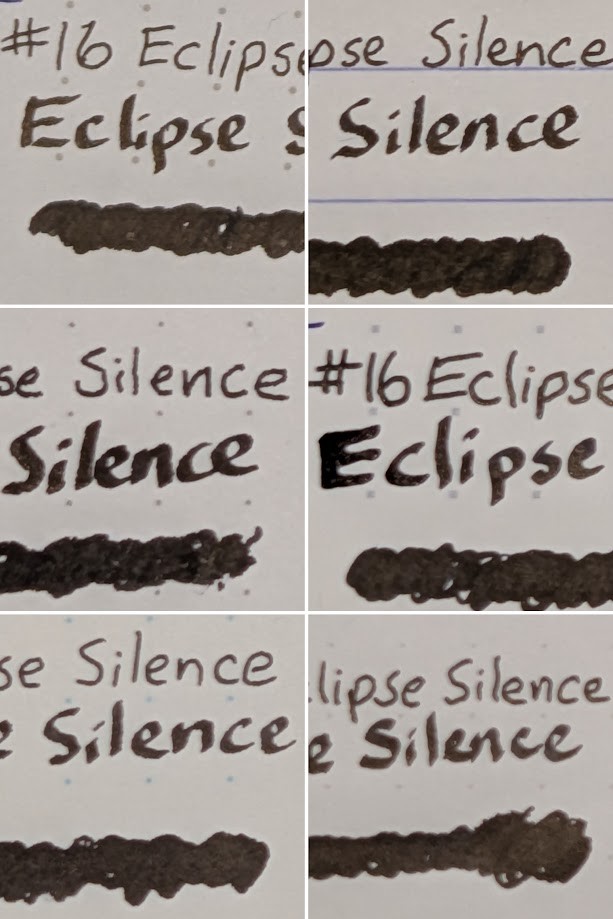 #16 Eclipse
Eclipse S
pse Silence
Silence
se Silence
Silence
#16 Eclipse
Eclipse
se Silence
e Silence
lipse Silence
e Silence